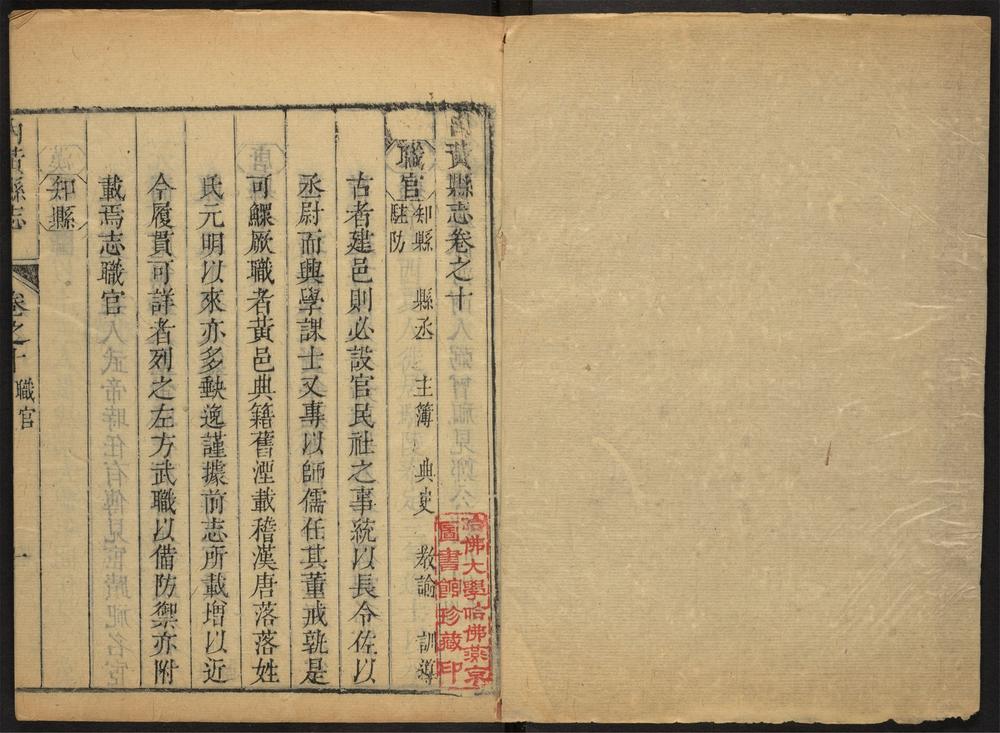 內黃縣志卷之十
職官 知縣 縣丞 主簿 典史 教諭 訓導
駐防
古者建邑則必設官民社之事統以長令佐以
丞尉而興學課士又專以師儒任其董戒孰是
可鰥厥職者黃邑典籍舊湮載稽漢唐落落姓
氏元明以來亦多軼逸謹據前志所載增以近
令履貫可詳者列之左方武職以備防禦亦附
載焉志職官
知縣
內黃縣志 卷之十 職官 一
哈佛大學哈佛燕京
圖書館珍藏印